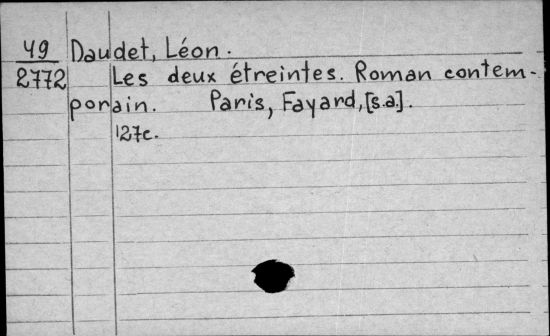 49 Daudet, Léon.
2772 Les deux étreintes. Roman contem-
porain. Paris, Fayard, [s.a.].
127c.